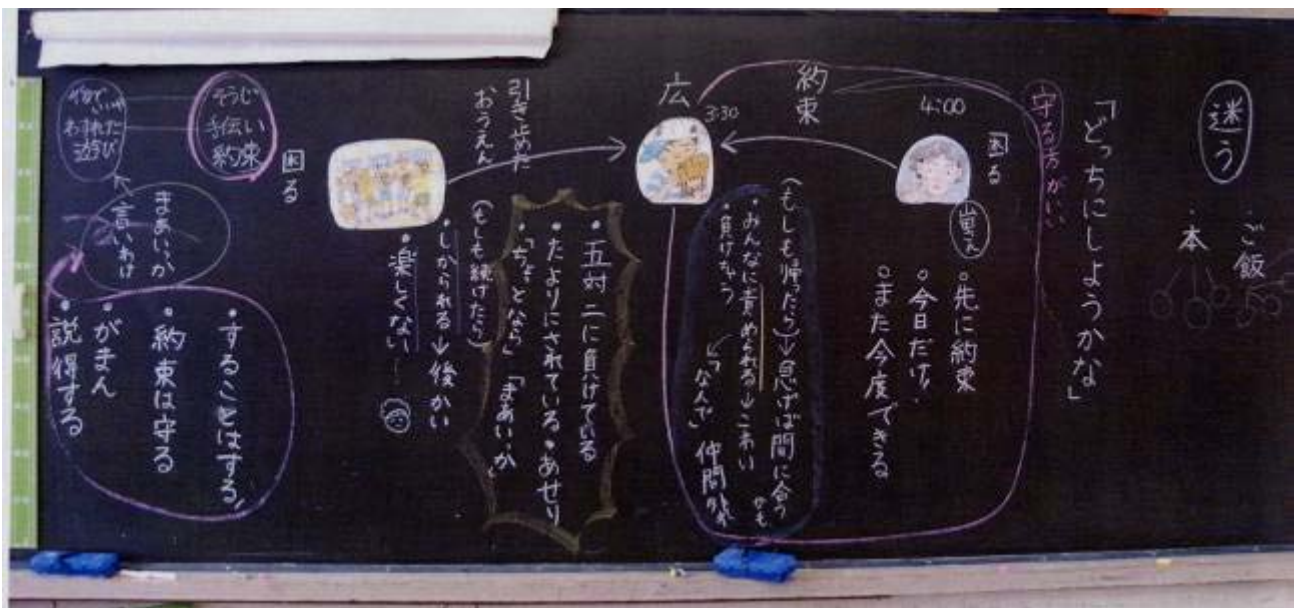 迷う
・ご飯
・本
「どっちにしようかな」
守る方がいい
4:00
困る
約束
○先に約束
○今日だけ!
○また今度できる
広
3:30
(もしも帰ったら)→急げば間に合う
・みんなに責められる→こわい
・負けちゃう
「なんで」
仲間外れ
かも
引き止めた
おうえん
・五対二に負けている
・たよりにされている・あせり
・「ちょっとなら」「まあいいか」
(もしも続けたら)
・しかられる→後かい
・楽しくない…
困る
そうじ
手伝い
約束
わすれた
遊び
まあいいか
言いわけ
・することはする!
・約束は守る
・がまん
・説得する